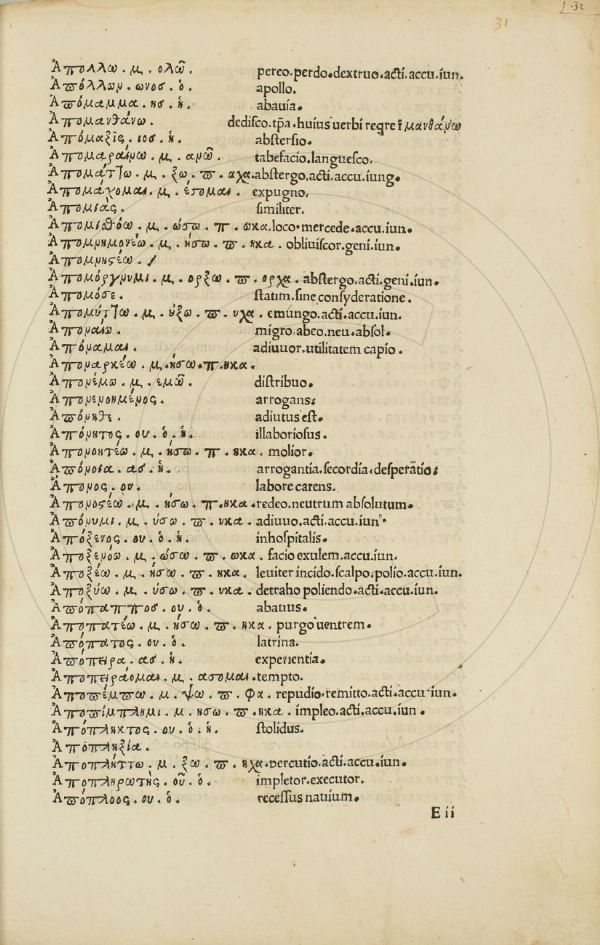 31
Ἀπολλω. μ. ολῶ. pereo.perdo.dextruo.acti.accu.iun.
Ἀπόλλων. ωνοσ. ὁ. apollo.
Ἀπόμαμμα. ησ. ἡ. abauia.
Ἀπομανθάνω. dedisco.tp̄a. huius uerbi reqre ī μανθάνω
Ἀπόμαξις. ιοσ. ἡ. abstersio.
Ἀπομαραίνω. μ. ανῶ. tabefacio.languesco.
Ἀπομάτζω. μ. ξω. π. αχα. abstergo.acti.accu.iung.
Ἀπομάχομαι. μ. έσομαι. expugno.
Ἀπομιὰς. similiter.
Ἀπομισθόω. μ. ώσω. π. ωκα. loco.mercede.accu.iun.
Ἀπομνημονέω. μ. ήσω. π. ηκα. obliuiscor.geni.iun.
Ἀπομνησέω. /
Ἀπομόργνυμι. μ. ορξω. π. ορχα. abstergo.acti.geni.iun.
Ἀπομόσε. statim.sine consyderatione.
Ἀπομύτζω. μ. ύξω. π. υχα. emungo.acti.accu.iun.
Ἀποναίω. migro.abeo.neu.absol.
Ἀπόναμαι. adiuuor.utilitatem capio.
Ἀποναρκέω. μ. ήσω. π. ηκα.
Ἀπονέμω. μ. εμῶ. distribuo.
Ἀπονενοημένος. arrogans:
Ἀπόνηθι. adiutus est.
Ἀπόνητος. ου. ὁ. ἡ. illaboriosus.
Ἀπονοητέω. μ. ήσω. π. ηκα. molior.
Ἀπόνοια. ασ. ἡ. arrogantia.secordia.desperātio:
Ἀπονος. ου. labore carens.
Ἀπονοσέω. μ. ήσω. π. ηκα. redeo.neutrum absolutum.
Ἀπόνυμι. μ. ύσω. π. υκα. adiuuo.acti.accu.iun.
Ἀπόξενος. ου. ὁ. ἡ. inhospitalis.
Ἀποξενόω. μ. ώσω. π. ωκα. facio exulem.accu.iun.
Ἀποξέω. μ. ήσω. π. ηκα. leuiter incido.scalpo.polio.accu.iun.
Ἀποξύω. μ. ύσω. π. υκα. detraho poliendo.acti.accu.iun.
Ἀπόπαππος. ου. ὁ. abauus.
Ἀποπατέω. μ. ήσω. π. ηκα. purgo uentrem.
Ἀπόπατος. ου. ὁ. latrina.
Ἀπόπειρα. ασ. ἡ. experientia.
Ἀποπειράομαι. μ. ασομαι. tempto.
Ἀποπέμπω. μ. ψω. π. φα. repudio.remitto.acti.accu.iun.
Ἀποπίμπλημι. μ. ησω. π. ηκα. impleo.acti.accu.iun.
Ἀπόπληκτος. ου. ὁ. ἡ. stolidus.
Ἀποπληξία.
Ἀποπλήττω. μ. ξω. π. ηχα. percutio.acti.accu.iun.
Ἀποπληρωτὴς. οῦ. ὁ. impletor.executor.
Ἀπόπλοος. ου. ὁ. recessus nauium.
E ii